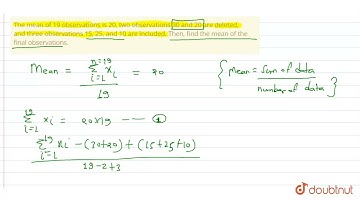 The mean of 19 observations is 20, two observations 30 and 20 are deleted,
and three observations 15, 25, and 10 are included. Then, find the mean of the
final observations.
Mean = n=19 Σ i=1 xi / 19 = 20
{ Mean = sum of data / number of data }
19 Σ i=1 xi = 20×19 —— ①
19 Σ i=1 xi - (30+20) + (15+25+10)
19-2+3
doubtnut